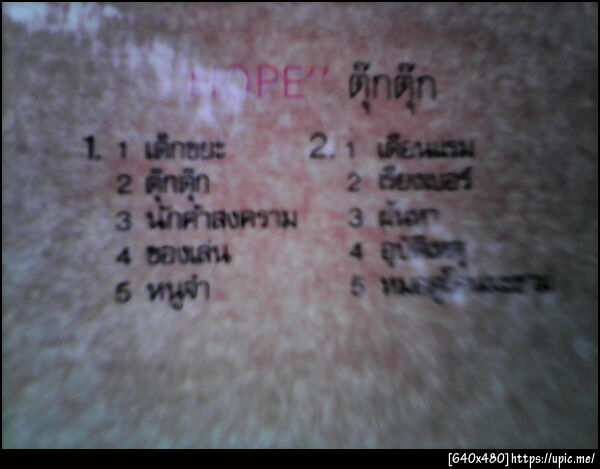 HOPE" ตุ๊กตุ๊ก
1. 1 เด็กขยะ
2 ตุ๊กตุ๊ก
3 นักค้าสงคราม
4 ของเล่น
5 หนูจ๋า
2. 1 เดือนแรม
2 เรียงเบอร์
3 ฝันหา
4 อุบัติเหตุ
5
[640x480]https://upic.me/